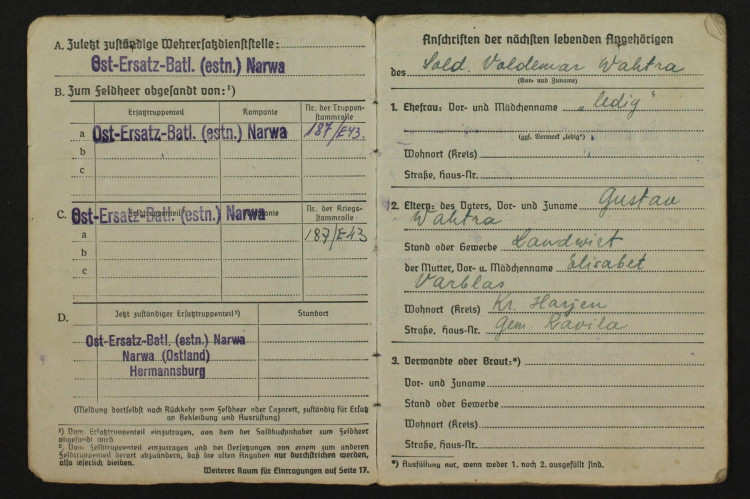 A. Zuletzt zuständige Wehrersatzdienststelle:
Ost-Ersatz-Batl. (estn.) Narwa
B. Zum Feldheer abgesandt von:¹)
Ersatztruppenteil Kompanie Nr. der Truppen-
stammrolle
a Ost-Ersatz-Batl. (estn.) Narwa 187/E43.
b
c
C. Feldtruppenteil²) Kompanie Nr. der Kriegs-
stammrolle
Ost-Ersatz-Batl. (estn.) Narwa
a 187/E43
b
c
D. Jetzt zuständiger Ersatztruppenteil²) Standort
Ost-Ersatz-Batl. (estn.) Narwa
Narwa (Ostland)
Hermannsburg
(Meldung dortselbst nach Rückkehr vom Feldheer oder Lazarett, zuständig für Ersatz
an Bekleidung und Ausrüstung)
¹) Vom Ersatztruppenteil einzutragen, von dem der Soldbuchinhaber zum Feldheer
abgesandt wird
²) Vom Feldtruppenteil einzutragen und bei Versetzungen von einem zum anderen
Feldtruppenteil derart abzuändern, daß die alten Angaben nur durchstrichen werden,
also leserlich bleiben.
Weiterer Raum für Eintragungen auf Seite 17.
Anschriften der nächsten lebenden Angehörigen
des Sold. Voldemar Wahtra
(Vor- und Zuname)
1. Ehefrau: Vor- und Mädchenname „ledig"
(ggf. Vermerk „ledig")
Wohnort (Kreis)
Straße, Haus-Nr.
2. Eltern: des Vaters, Vor- und Zuname Gustav
Wahtra
Stand oder Gewerbe Landwirt
der Mutter, Vor- u. Mädchenname Elisabet
Varblas
Wohnort (Kreis) Kr. Harjen
Straße, Haus-Nr. Gem. Ravila
3. Verwandte oder Braut:*)
Vor- und Zuname
Stand oder Gewerbe
Wohnort (Kreis)
Straße, Haus-Nr.
*) Ausfüllung nur, wenn weder 1. noch 2. ausgefüllt sind.